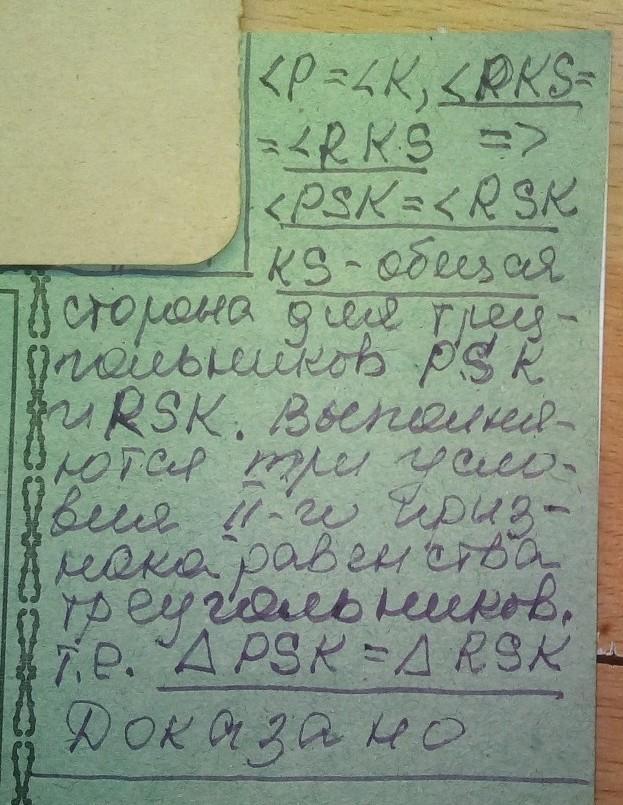 <P=<K, <PKS=
=<RKS =>
<PSK=<RSK
KS-общая
сторона для треу-
гольников PSK
и RSK. Выполня-
ются три усло-
вия II-го приз-
нака равенства
треугольников.
т.е. Δ PSK = Δ RSK
Доказано